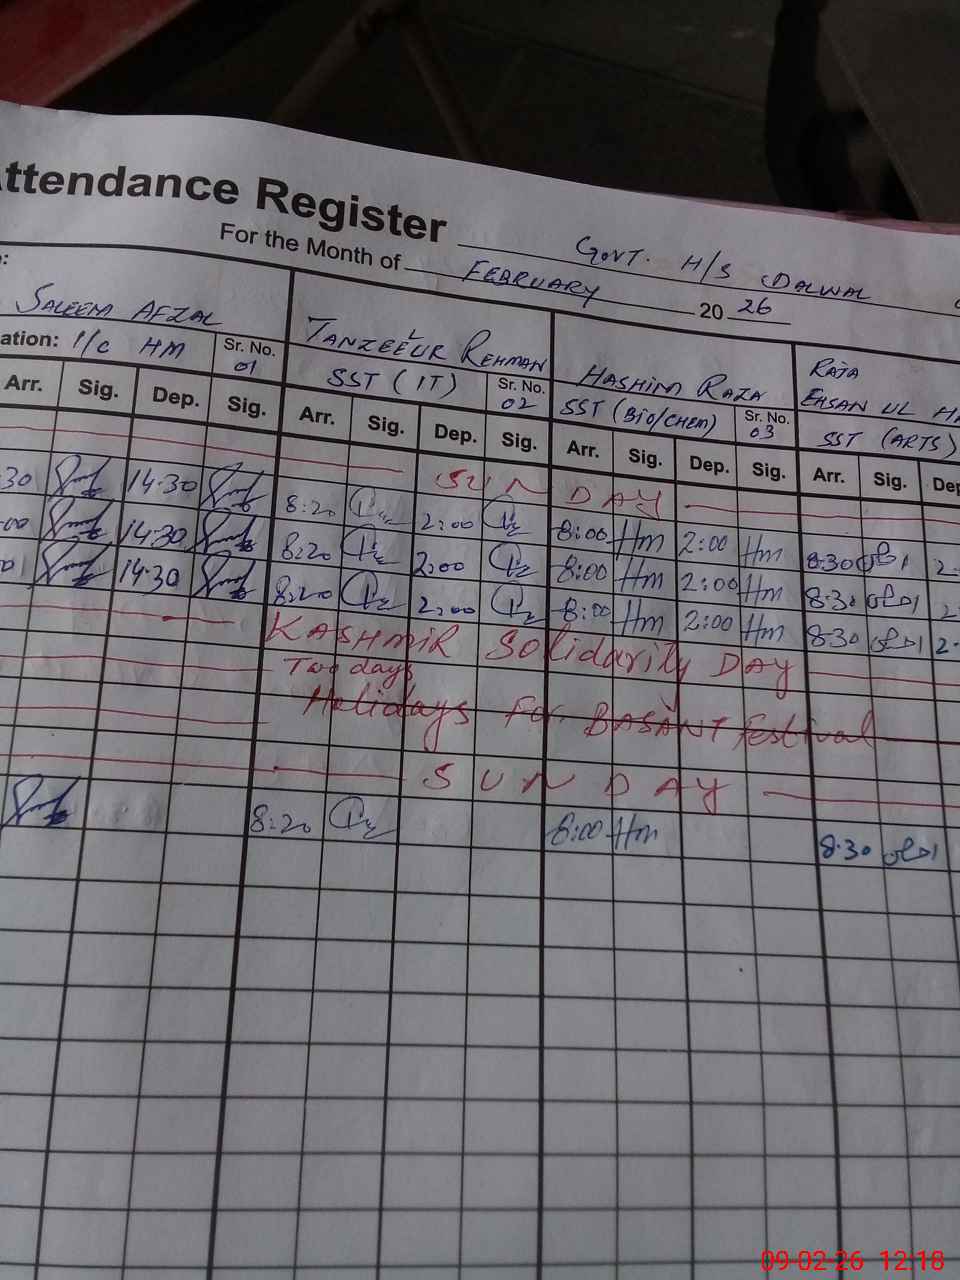 Attendance Register GOVT. H/S DALWAL
For the Month of FEBRUARY 20 26
SALEEM AFZAL TANZEEUR REHMAN HASHIM RAZA RAJA EHSAN UL
ation: I/C HM Sr. No. 01 SST (IT) Sr. No. 02 SST (BIO/CHEM) Sr. No. 03 SST (ARTS)
Arr. Sig. Dep. Sig. Arr. Sig. Dep. Sig. Arr. Sig. Dep. Sig. Arr. Sig. Dep
SUNDAY
30 14.30 8:20 2:00 8:00 Hm 2:00 Hm 8.30 2.
00 14.30 8:20 2:00 8:00 Hm 2:00 Hm 8.30 2
14.30 8:20 2:00 8:00 Hm 2:00 Hm 8.30 2.
KASHMIR Solidarity DAY
Two days
Holidays For BASANT Festival
SUNDAY
8:20 8:00 Hm 8.30
09-02-26 12:18